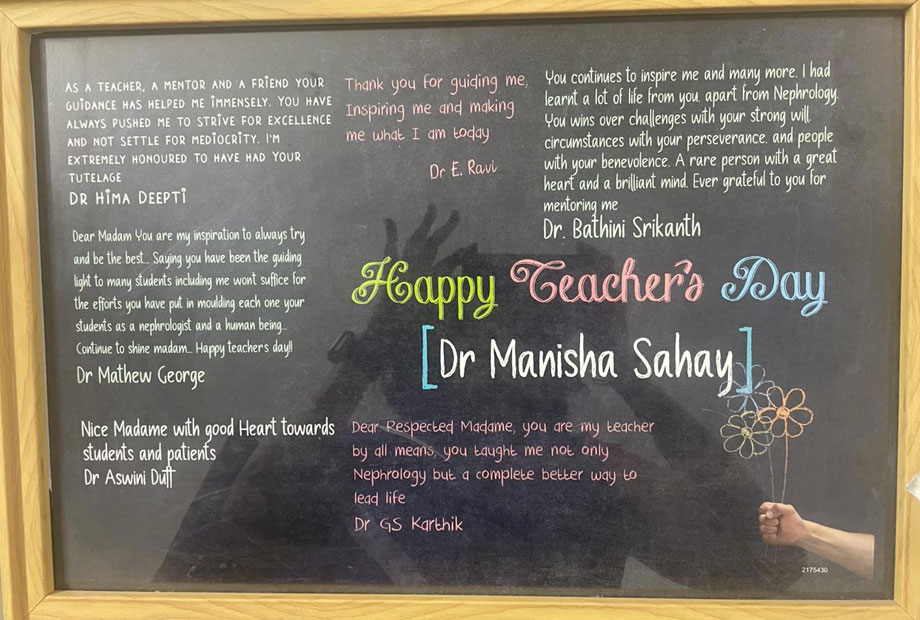 AS A TEACHER, A MENTOR AND A FRIEND YOUR
GUIDANCE HAS HELPED ME IMMENSELY. YOU HAVE
ALWAYS PUSHED ME TO STRIVE FOR EXCELLENCE
AND NOT SETTLE FOR MEDIOCRITY. I'M
EXTREMELY HONOURED TO HAVE HAD YOUR
TUTELAGE
DR HIMA DEEPTI
Thank you for guiding me,
Inspiring me and making
me what I am today
Dr E. Ravi
You continues to inspire me and many more. I had
learnt a lot of life from you, apart from Nephrology.
You wins over challenges with your strong will,
circumstances with your perseverance, and people
with your benevolence. A rare person with a great
heart and a brilliant mind. Ever grateful to you for
mentoring me
Dr. Bathini Srikanth
Dear Madam You are my inspiration to always try
and be the best... Saying you have been the guiding
light to many students including me wont suffice for
the efforts you have put in moulding each one your
students as a nephrologist and a human being...
Continue to shine madam... Happy teachers day!!
Dr Mathew George
Happy Teacher's Day
[Dr Manisha Sahay]
Nice Madame with good Heart towards
students and patients
Dr Aswini Dutt
Dear Respected Madame, you are my teacher
by all means, you taught me not only
Nephrology but a complete better way to
lead life
Dr GS Karthik
2175430